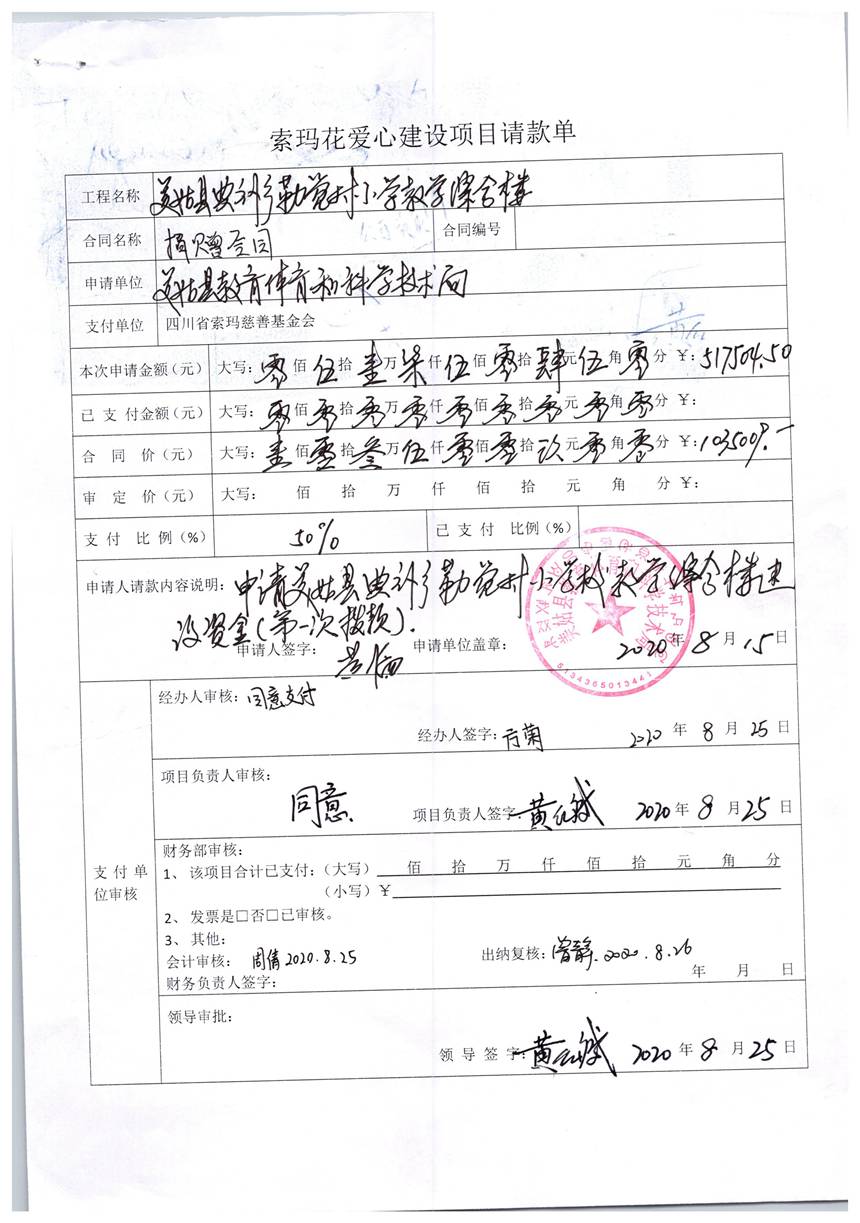 索玛花爱心建设项目请款单
工程名称 美姑县典补乡勒觉村小学教学综合楼
合同名称 捐赠合同 合同编号
申请单位 美姑县教育体育和科学技术局
支付单位 四川省索玛慈善基金会
本次申请金额(元) 大写:零佰伍拾壹万柒仟伍佰零拾肆元伍角零分 ¥:517504.50
已支付金额(元) 大写:零佰零拾零万零仟零佰零拾零元零角零分 ¥:
合同价(元) 大写:壹佰零拾叁万伍仟零佰零拾玖元零角零分 ¥:1035009.-
审定价(元) 大写: 佰 拾 万 仟 佰 拾 元 角 分 ¥:
支付比例(%) 50% 已支付 比例(%)
申请人请款内容说明:申请美姑县典补乡勒觉村小学校教学综合楼建
设资金(第一次拨款).
申请人签字: 申请单位盖章: 2020年8月15日
5134365013441
支付单位审核
经办人审核:同意支付
经办人签字:方菊 2020年8月25日
项目负责人审核:
同意.
项目负责人签字:黄红斌 2020年8月25日
财务部审核:
1、该项目合计已支付:(大写) 佰 拾 万 仟 佰 拾 元 角 分
(小写)¥
2、发票是□否□已审核。
3、其他:
会计审核: 周倩 2020.8.25 出纳复核:曾静.2020.8.26
财务负责人签字: 年 月 日
领导审批:
领导签字:黄红斌 2020年8月25日